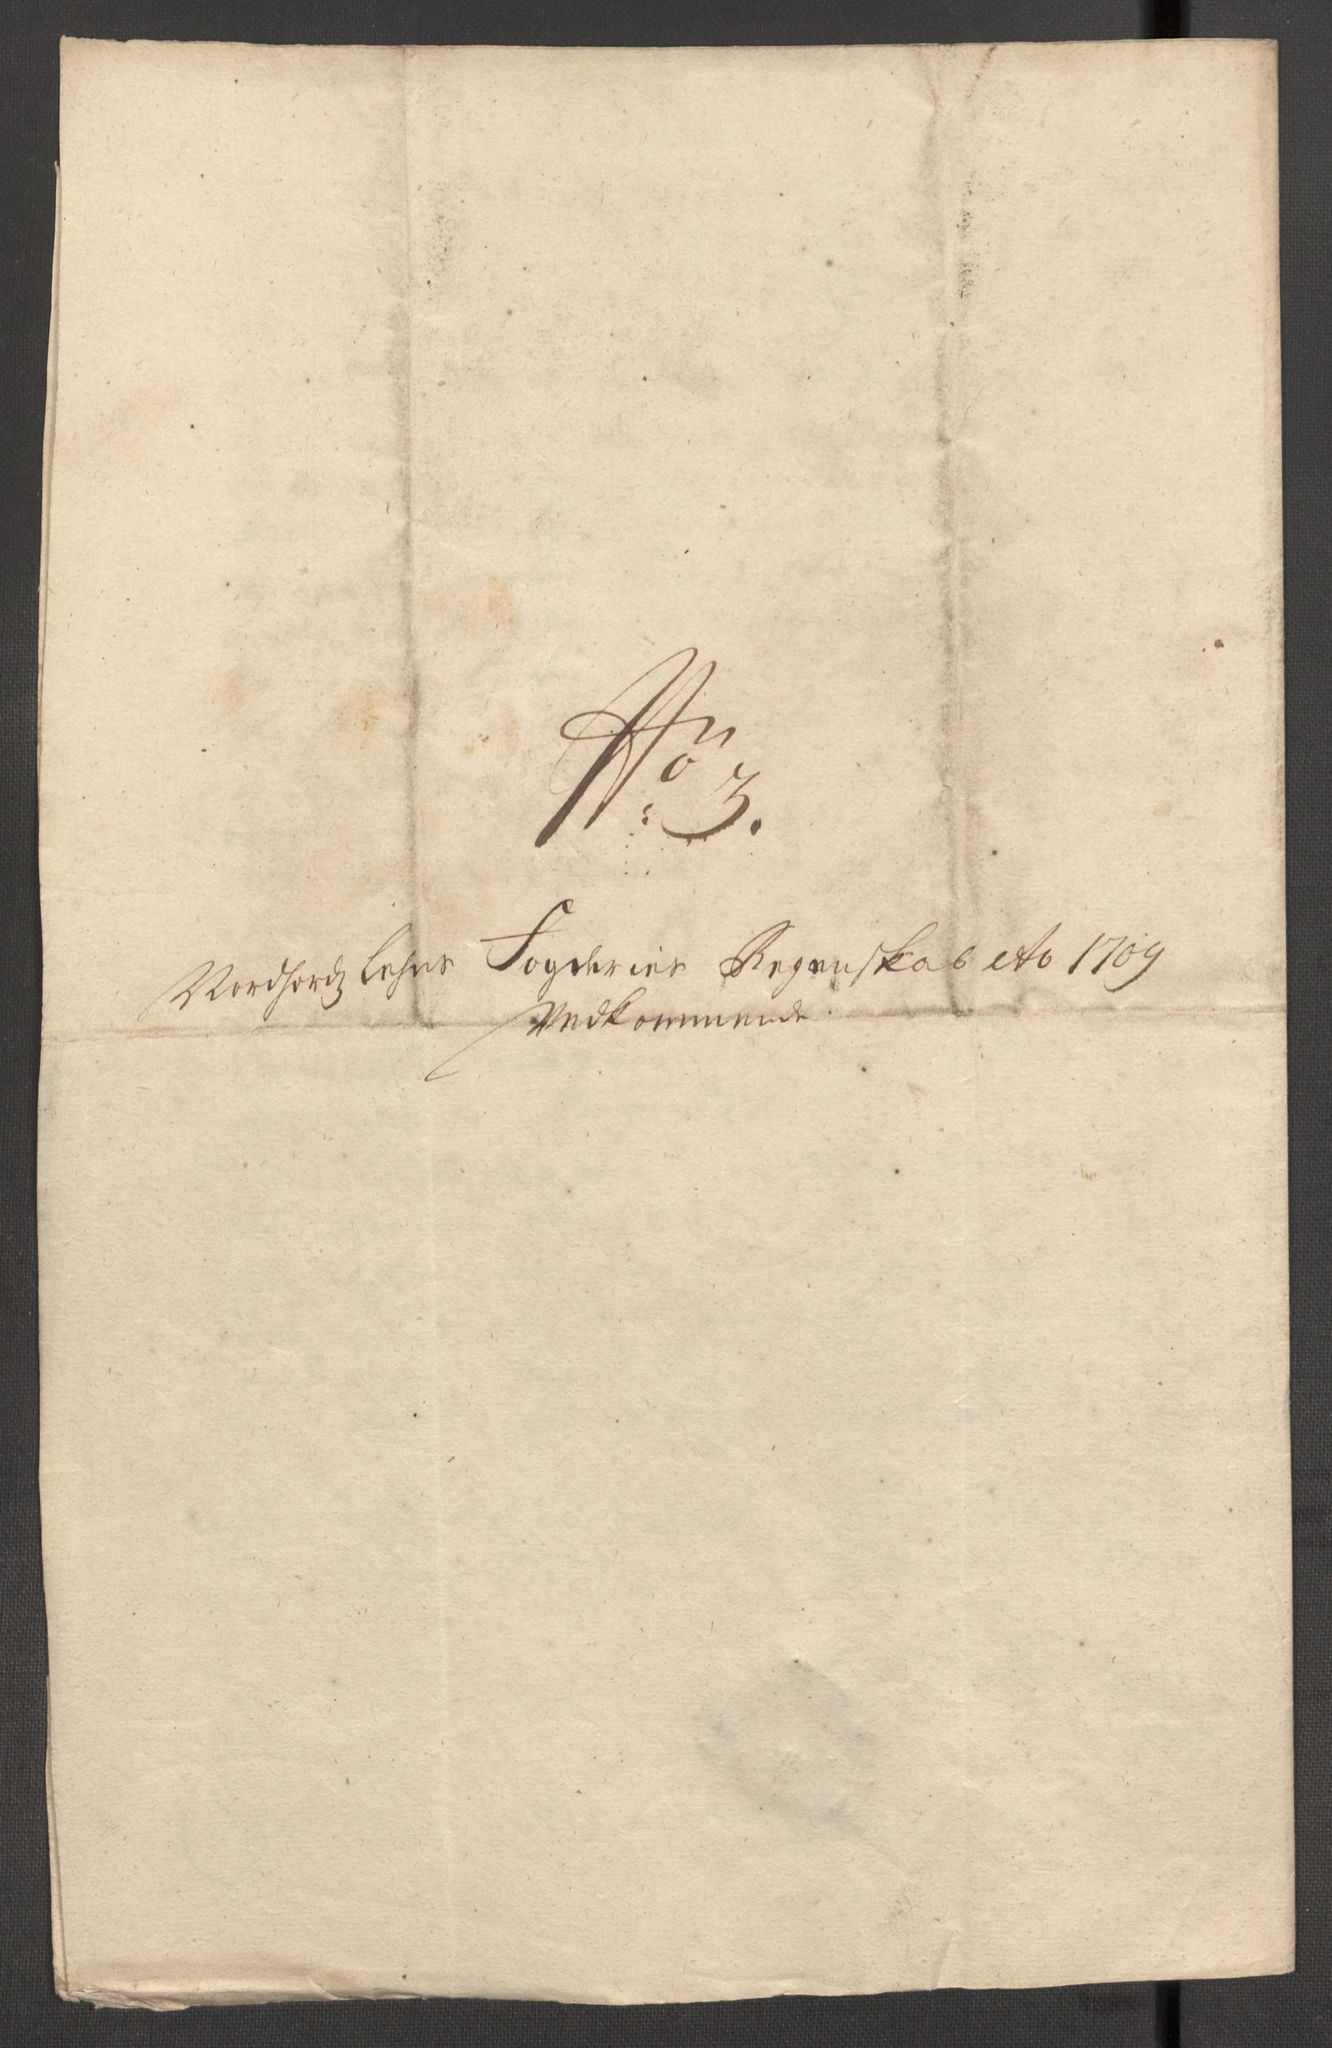 No 3.
Nordhordz Lehns Fogderies Regenskab Ao 1709
Vedkommende